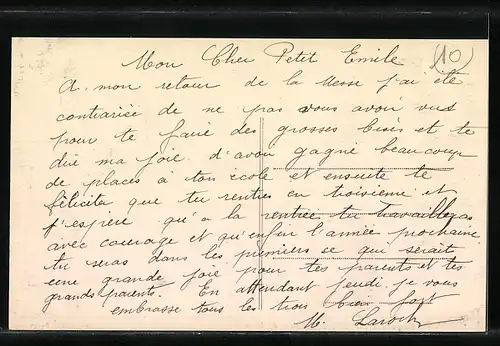 Mon Cher Petit Emile (10)
A mon retour de la Messe j'ai été
contrariée de ne pas vous avoir vus
pour te faire des grosses bises et te
dire ma joie d'avoir gagné beaucoup
de places à ton école et ensuite te
féliciter que tu rentres en troisieme et
j'espere qu'a la rentrée tu travailleras
avec courage et qu'enfin l'année prochaine
tu seras dans les premiers se qui serait
une grande joie pour tes parents et tes
grands parents. En attendant jeudi je vous
embrasse tous les trois bien fort
M.